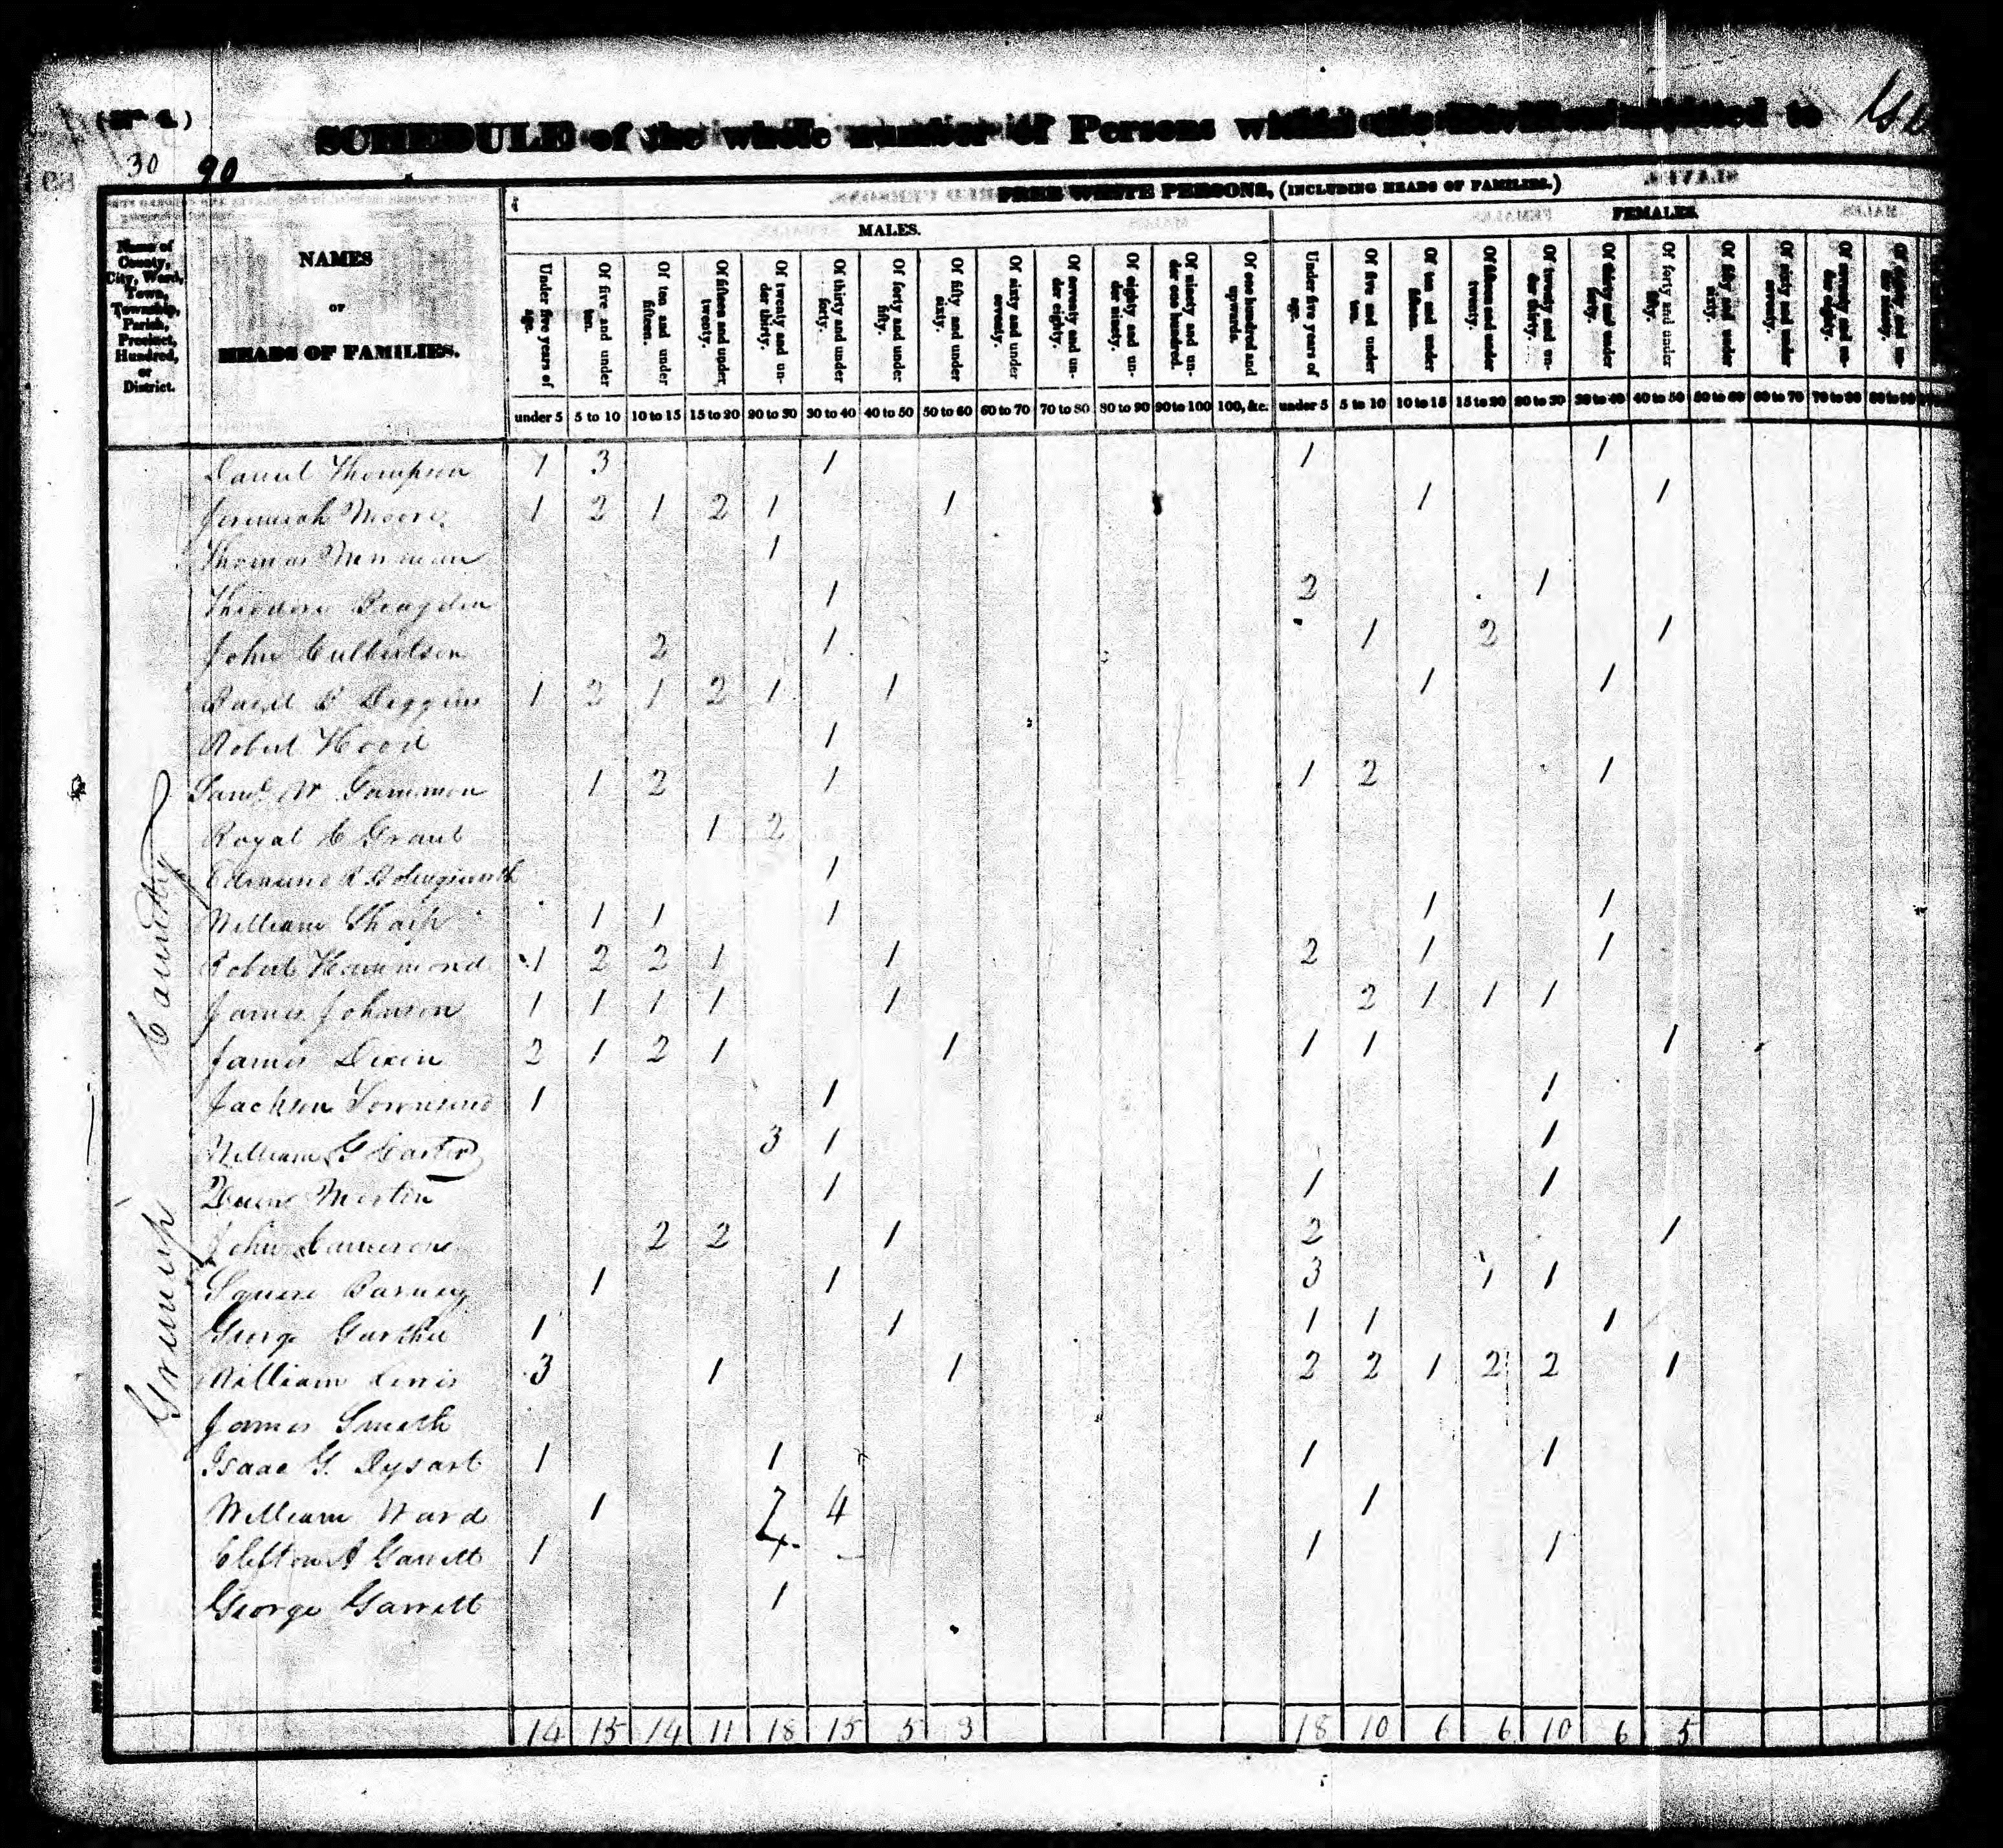 (No. 4.)
SCHEDULE of the whole number of Persons within the Division allotted to
30 90
FREE WHITE PERSONS, (INCLUDING HEADS OF FAMILIES.)
MALES. FEMALES.
Name of County, City, Ward, Town, Township, Parish, Precinct, Hundred, or District.
NAMES
OF
HEADS OF FAMILIES.
Under five years of age. Of five and under ten. Of ten and under fifteen. Of fifteen and under twenty. Of twenty and under thirty. Of thirty and under forty. Of forty and under fifty. Of fifty and under sixty. Of sixty and under seventy. Of seventy and under eighty. Of eighty and under ninety. Of ninety and under one hundred. Of one hundred and upwards. Under five years of age. Of five and under ten. Of ten and under fifteen. Of fifteen and under twenty. Of twenty and under thirty. Of thirty and under forty. Of forty and under fifty. Of fifty and under sixty. Of sixty and under seventy. Of seventy and under eighty. Of eighty and under ninety.
under 5 5 to 10 10 to 15 15 to 20 20 to 30 30 to 40 40 to 50 50 to 60 60 to 70 70 to 80 80 to 90 90 to 100 100, &c. under 5 5 to 10 10 to 15 15 to 20 20 to 30 30 to 40 40 to 50 50 to 60 60 to 70 70 to 80 80 to 90
Daniel Thompson 1 3 1 1 1
Jeremiah Moore 1 2 1 2 1 1 1 1
Thomas 1
Theodore 1 2 1
John Culbertson 2 1 1 2 1
David B Diggins 1 2 1 2 1 1 1 1
Robert Hood 1
Saml W Gammon 1 2 1 1 2 1
Royal C Grant 1 2
Edmund R 1
William Sharp 1 1 1 1 1
Robert Hammond 1 2 2 1 1 2 1 1
James Johnson 1 1 1 1 1 2 1 1 1
James Dixon 2 1 2 1 1 1 1 1
Jackson Townsend 1 1 1
William G Carter 3 1 1
Martin 1 1 1
John Cameron 2 2 1 2 1
Squire Barney 1 1 3 1 1
George 1 1 1 1 1
William Lewis 3 1 1 2 2 1 2 2 1
James Smith
Isaac G. Dysart 1 1 1 1
William Ward 1 7 4 1
Clifton A Garrett 1 1 1
George Garrett 1
County
14 15 14 11 18 15 5 3 18 10 6 6 10 6 5